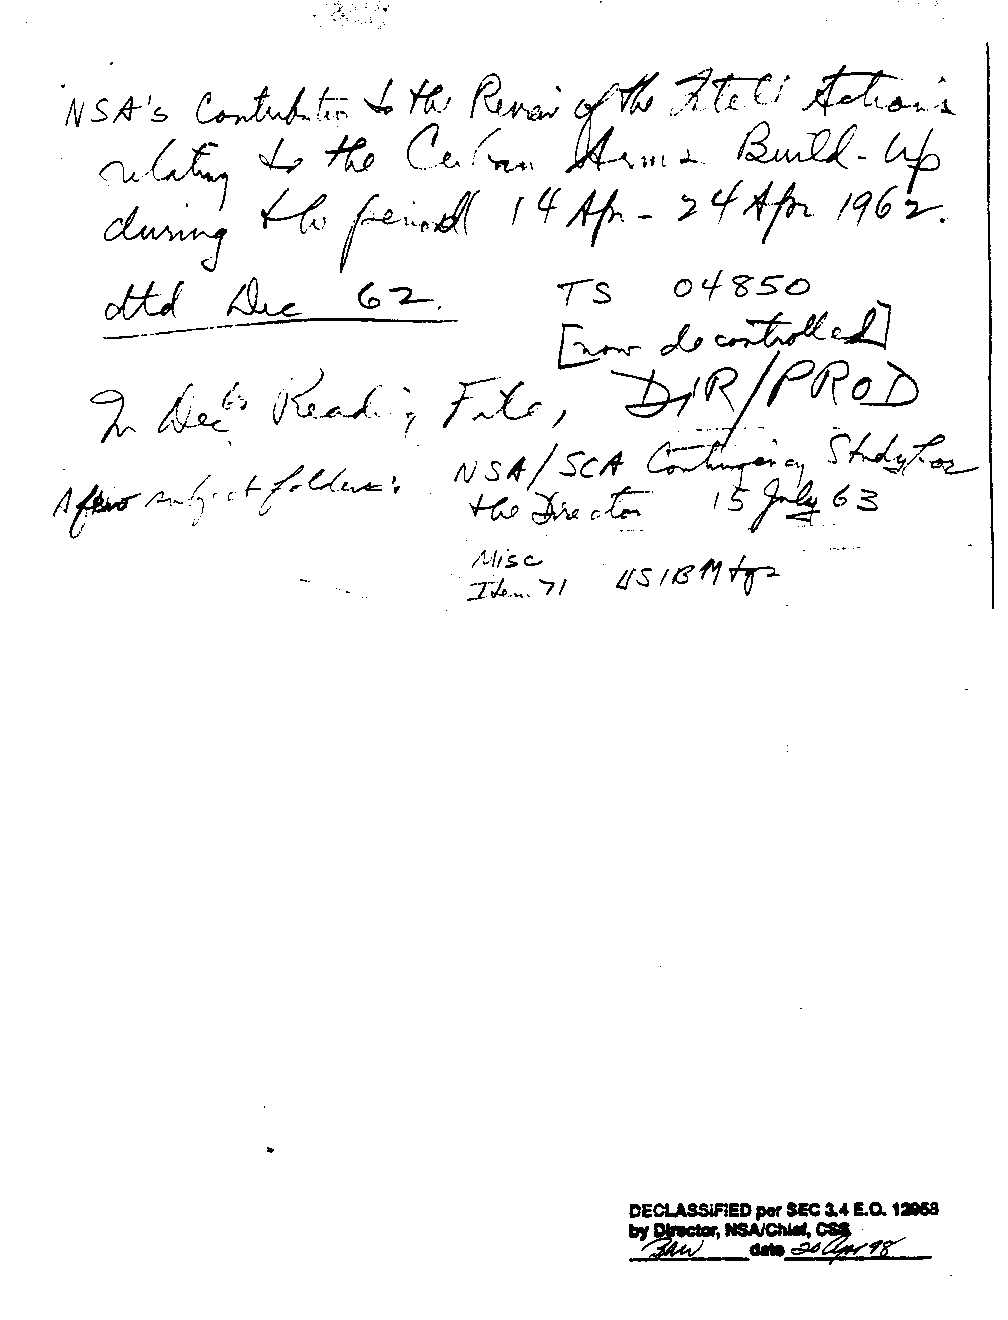 NSA's Contribution to the Review of the Intell Actions
relating to the Cuban Arms Build-Up
during the period 14 Apr - 24 Apr 1962.
dtd Dec 62.
TS 04850
[now decontrolled]
In Dec 62 Reading File, DIR/PROD
A few subject folders:
NSA/SCA Contingency Study for
the Director 15 July 63
Misc
Item 71 USIB Mtgs
DECLASSIFIED per SEC 3.4 E.O. 12958
by Director, NSA/Chief, CSS
date 20 Apr 98